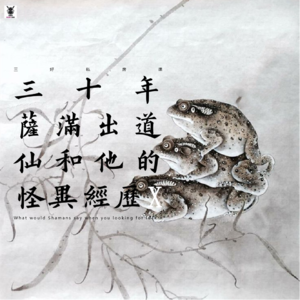 三十年
薩滿出道
仙和他的
怪異經歷X
What would Shamans say when you looking for